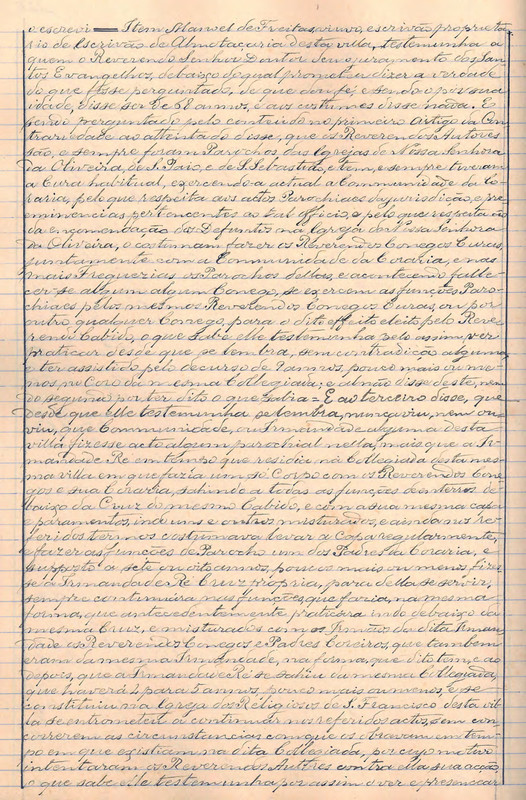 o escrevi = Item Manoel de Freitas, viuvo, escrivão propieta-
rio de Escrivão de Almotaçaria desta villa, testemunha a
quem o Reverendo Senhor Doutor deu o juramento dos San-
tos Evangelhos, debaixo do qual prometeu dizer a verdade
do que fosse perguntado, do que dou fé, e sendo-o por sua
idade, disse ser de 68 annos, e aos custumes disse nada. E
sendo perguntado pelo contheudo no primeiro artigo da Con-
trariedade ao attentado disse, que os Reverendos Autores
são, e sempre foram Parochos das Igrejas de Nossa Senhora
da Oliveira, de S. Paio, e de S. Sebastião, e tem, e sempre tiveram
a Cura habitual, exercendo a actual a Communidade da Co-
raria, pelo que respeita aos actos Parochiaes da jurisdição, e pre-
eminencias pertencentes ao tal officio, e pelo que respeita ao
da encomendação dos Defuntos na Igreja de Nossa Senhora
da Oliveira, o costumam fazer os Reverendos Conegos Curas,
juntamente com a Communidade da Coraria, e nas
mais Freguezias os Parochos dellas, e acontecendo falle-
cer-se algum algum Conego, se exercem as funções Paro-
chiaes pelos mesmos Reverendos Conegos Curais, ou por
outro qualquer Conego, para o dito effeito eleito pelo Reve-
rendo Cabido, o que sabe elle testemunha pelo assim ver
praticar desde que se lembra, sem contradição alguma
e ter assistido pelo decurso de 9 annos, pouco mais ou me-
nos, no Coro da mesma Collegiada; e al não disse deste, nem
do segundo por ter dito o que sabia = E ao terceiro disse, que
desde que elle testemunha se lembra, nunca viu, nem ou-
viu, que Communidade, ou Irmandade alguma desta
villa fizesse acto algum parochial nella, mais que a Ir-
mandade Ré em tempo que residia na Collegiada desta mes-
ma villa em que fazia um só Corpo com os Reverendos Cone-
gos e sua Coraria, sahindo a todas as funções de enterros de-
baixo da Cruz do mesmo Cabido, e com a sua mesma capa
e paramentos, indo uns e outros misturados, e ainda nos re-
feridos termos costumava levar a Capa regularmente,
e fazer as funções de Parocho um dos Padres da Coraria, e
supposto a sete ou oito annos, pouco mais ou menos, fizes-
se a Irmandade Ré Cruz propria, para della se servir,
sempre continuára nas funções, que fazia, na mesma
forma, que antecedentemente praticára indo debaixo da
mesma Cruz, e misturados com os Irmãos da dita Irman-
dade os Reverendos Conegos e Padres Coreiros, que tambem
eram da mesma Irmandade, na forma, que dito tem; e ao
depois, que a Irmandade Ré se sahiu da mesma Collegiada,
que haverá 4 para 5 annos, pouco mais ou menos, e se
constituiu na Igreja dos Religiosos de S. Francisco desta vil-
la se entrometeu a continuar nos referidos actos, sem con-
correrem as circunstancias com que os obravam em tem-
po em que existiam na dita Collegiada, por cujo motivo
intentaram os Reverendos Autores contra ella sua acção,
o que sabe elle testemunha por assim o ver e presencear